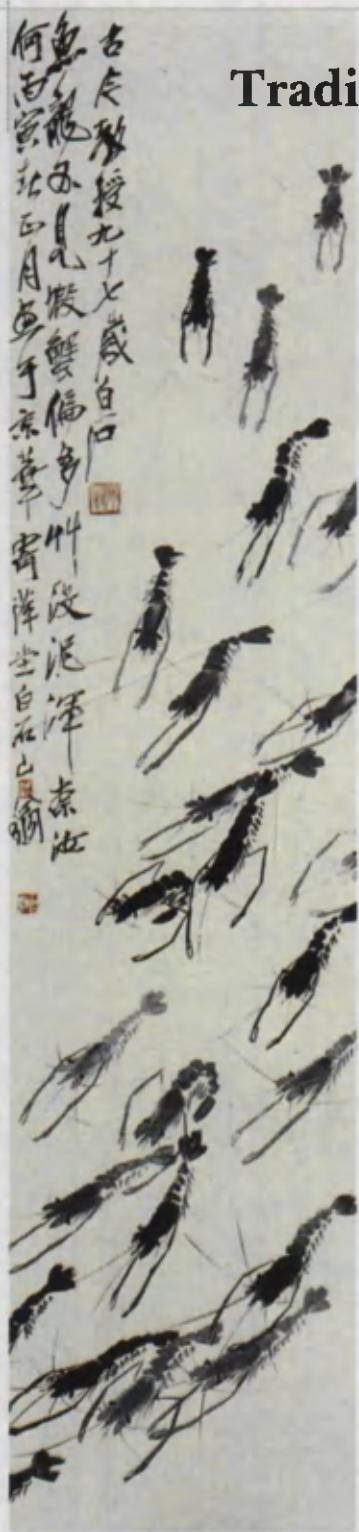 Tradi
教授九十七歲白石
魚龍不見蝦蟹偏多艸沒泥渾奈汝
何丙寅春正月畫于京華寄萍堂白石山翁